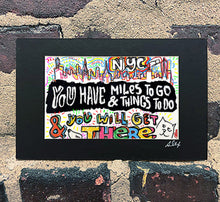 NYC
YOU HAVE MILES TO GO
& THINGS TO DO
& YOU WILL GET
THERE